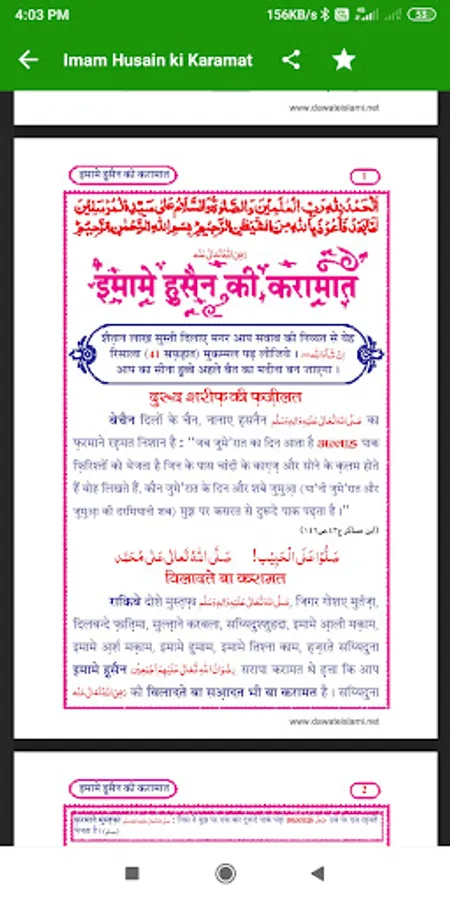 4:03 PM 156KB/s 53
Imam Husain ki Karamat
www.dawateislami.net
इमामे हुसैन की करामात 1
اَلْحَمْدُ لِلّٰهِ رَبِّ الْعٰلَمِيْنَ وَالصَّلٰوةُ وَالسَّلَامُ عَلٰى سَيِّدِ الْمُرْسَلِيْنَ
اَمَّا بَعْدُ فَاَعُوْذُ بِاللّٰهِ مِنَ الشَّيْطٰنِ الرَّجِيْمِ بِسْمِ اللّٰهِ الرَّحْمٰنِ الرَّحِيْمِ
رَضِیَ اللّٰهُ تَعَالٰی عَنْهُ
इमामे हुसैन की करामात
शैतान लाख सुस्ती दिलाए मगर आप सवाब की निय्यत से येह
रिसाला (41 सफ़हात) मुकम्मल पढ़ लीजिये ।
आप का सीना हुब्बे अहले बैत का मदीना बन जाएगा ।
दुरूद शरीफ़ की फ़ज़ीलत
बेचैन दिलों के चैन, नानाए हसनैन صَلَّى اللّٰهُ تَعَالٰى عَلَيْهِ وَاٰلِهٖ وَسَلَّم का
फ़रमाने रहमत निशान है : "जब जुमे'रात का दिन आता है अल्लाह पाक
फ़िरिश्तों को भेजता है जिन के पास चांदी के काग़ज़ और सोने के क़लम होते
हैं वोह लिखते हैं, कौन जुमे'रात के दिन और शबे जुमुआ (या'नी जुमे'रात और
जुमुआ की दरमियानी शब) मुझ पर कसरत से दुरूदे पाक पढ़ता है ।"
(ابن عساکر ج٤٣ ص١٤٢)
صَلُّوْا عَلَى الْحَبِيْب! صَلَّى اللّٰهُ تَعَالٰى عَلٰى مُحَمَّد
विलादते बा करामत
राकिबे दोशे मुस्तफ़ा صَلَّى اللّٰهُ تَعَالٰى عَلَيْهِ وَاٰلِهٖ وَسَلَّم, जिगर गोशए मुर्तज़ा,
दिलबन्दे फ़ातिमा, सुल्ताने करबला, सय्यिदुश्शुहदा, इमामे आली मक़ाम,
इमामे अर्श मक़ाम, इमामे हुमाम, इमामे तिश्ना काम, हज़रते सय्यिदुना
इमामे हुसैन رِضْوَانُ اللّٰهِ تَعَالٰى عَلَيْهِمْ اَجْمَعِيْن सरापा करामत थे हत्ता कि आप
رَضِیَ اللّٰهُ تَعَالٰی عَنْهُ की विलादते बा सआदत भी बा करामत है । सय्यिदुना
www.dawateislami.net
इमामे हुसैन की करामात 2
फ़रमाने मुस्तफ़ा